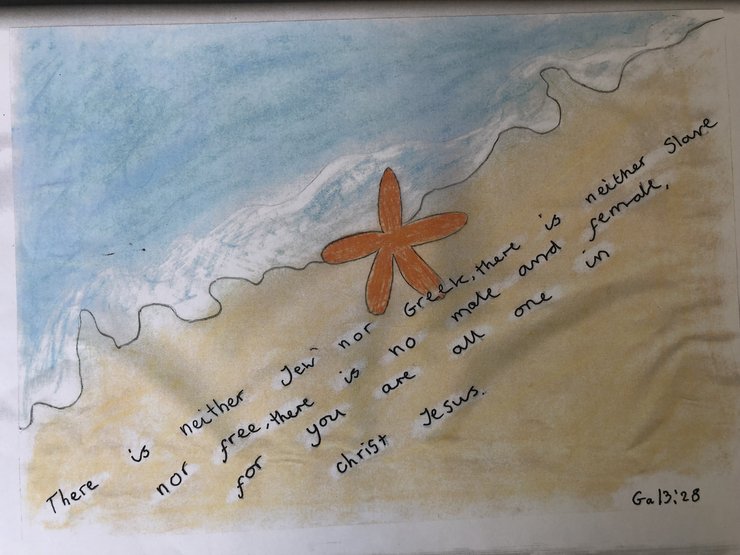 There is neither Jew nor Greek, there is neither Slave
nor free, there is no male and female,
for you are all one in
christ Jesus.
Gal3:28